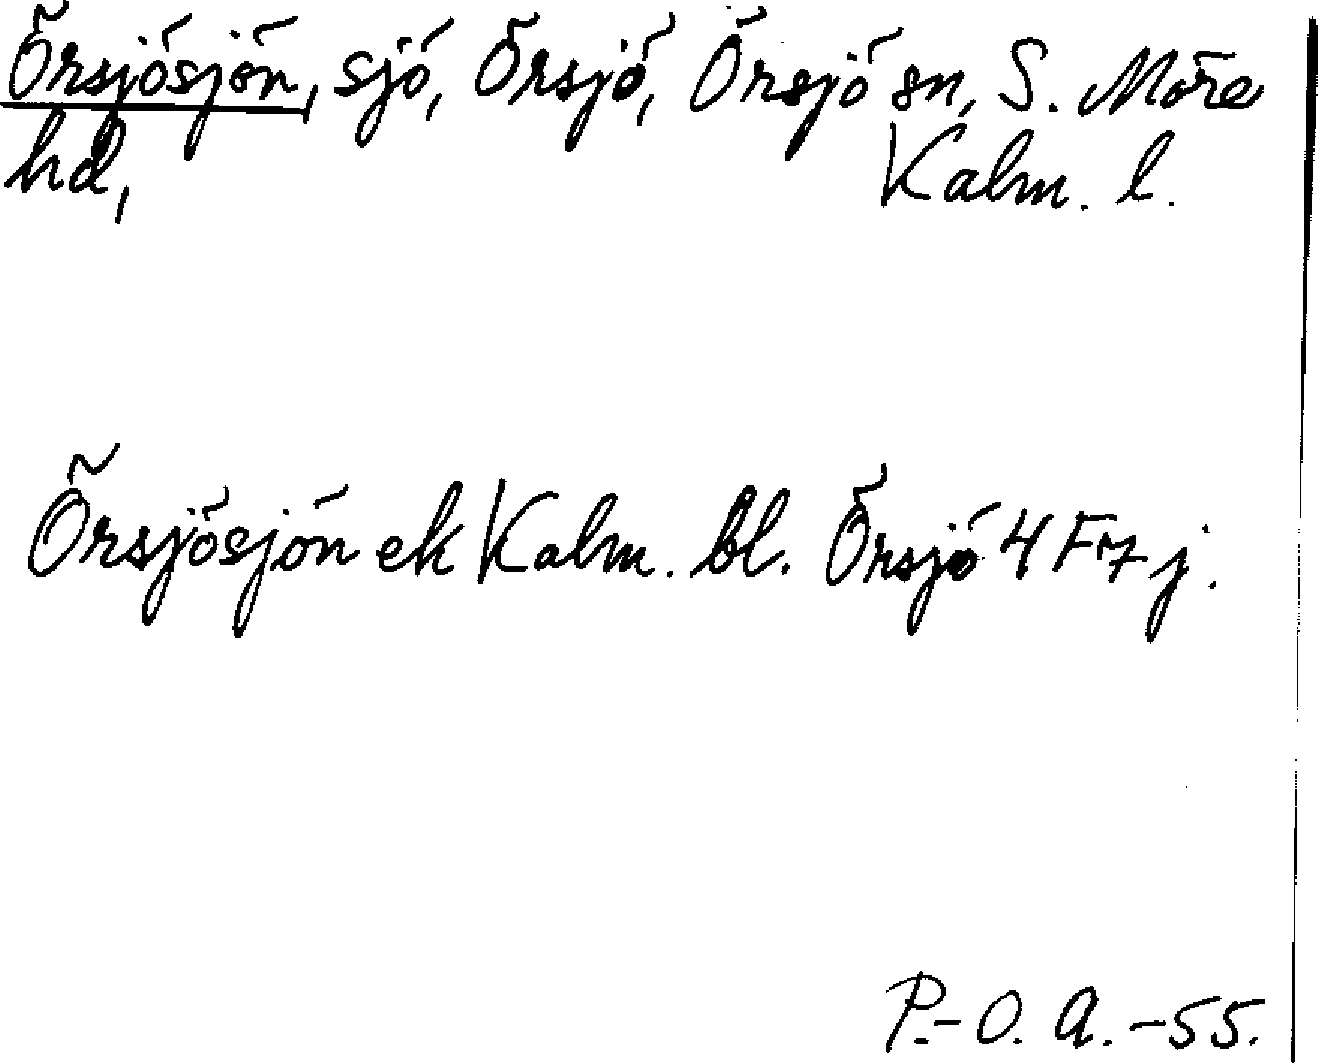 Örsjösjön, sjö, Örsjö, Örsjö sn, S. Möre
hd, Kalm. l.
Örsjösjön ek Kalm. bl. Örsjö 4 F 7 j.
P.-O. A. -55.